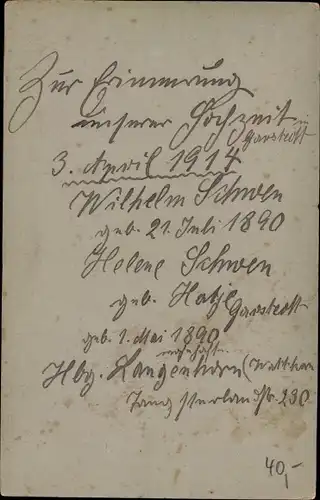 Zur Erinnerung
unserer Hochzeit in
Garstedt
3. April 1914
Wilhelm Schwen
geb. 21. Juli 1890
Helene Schwen
geb. Hatje Garstedt
geb. 1. Mai 1890
Hbg. Langenhorn
Tangstedterlandstr. 230.
40,-